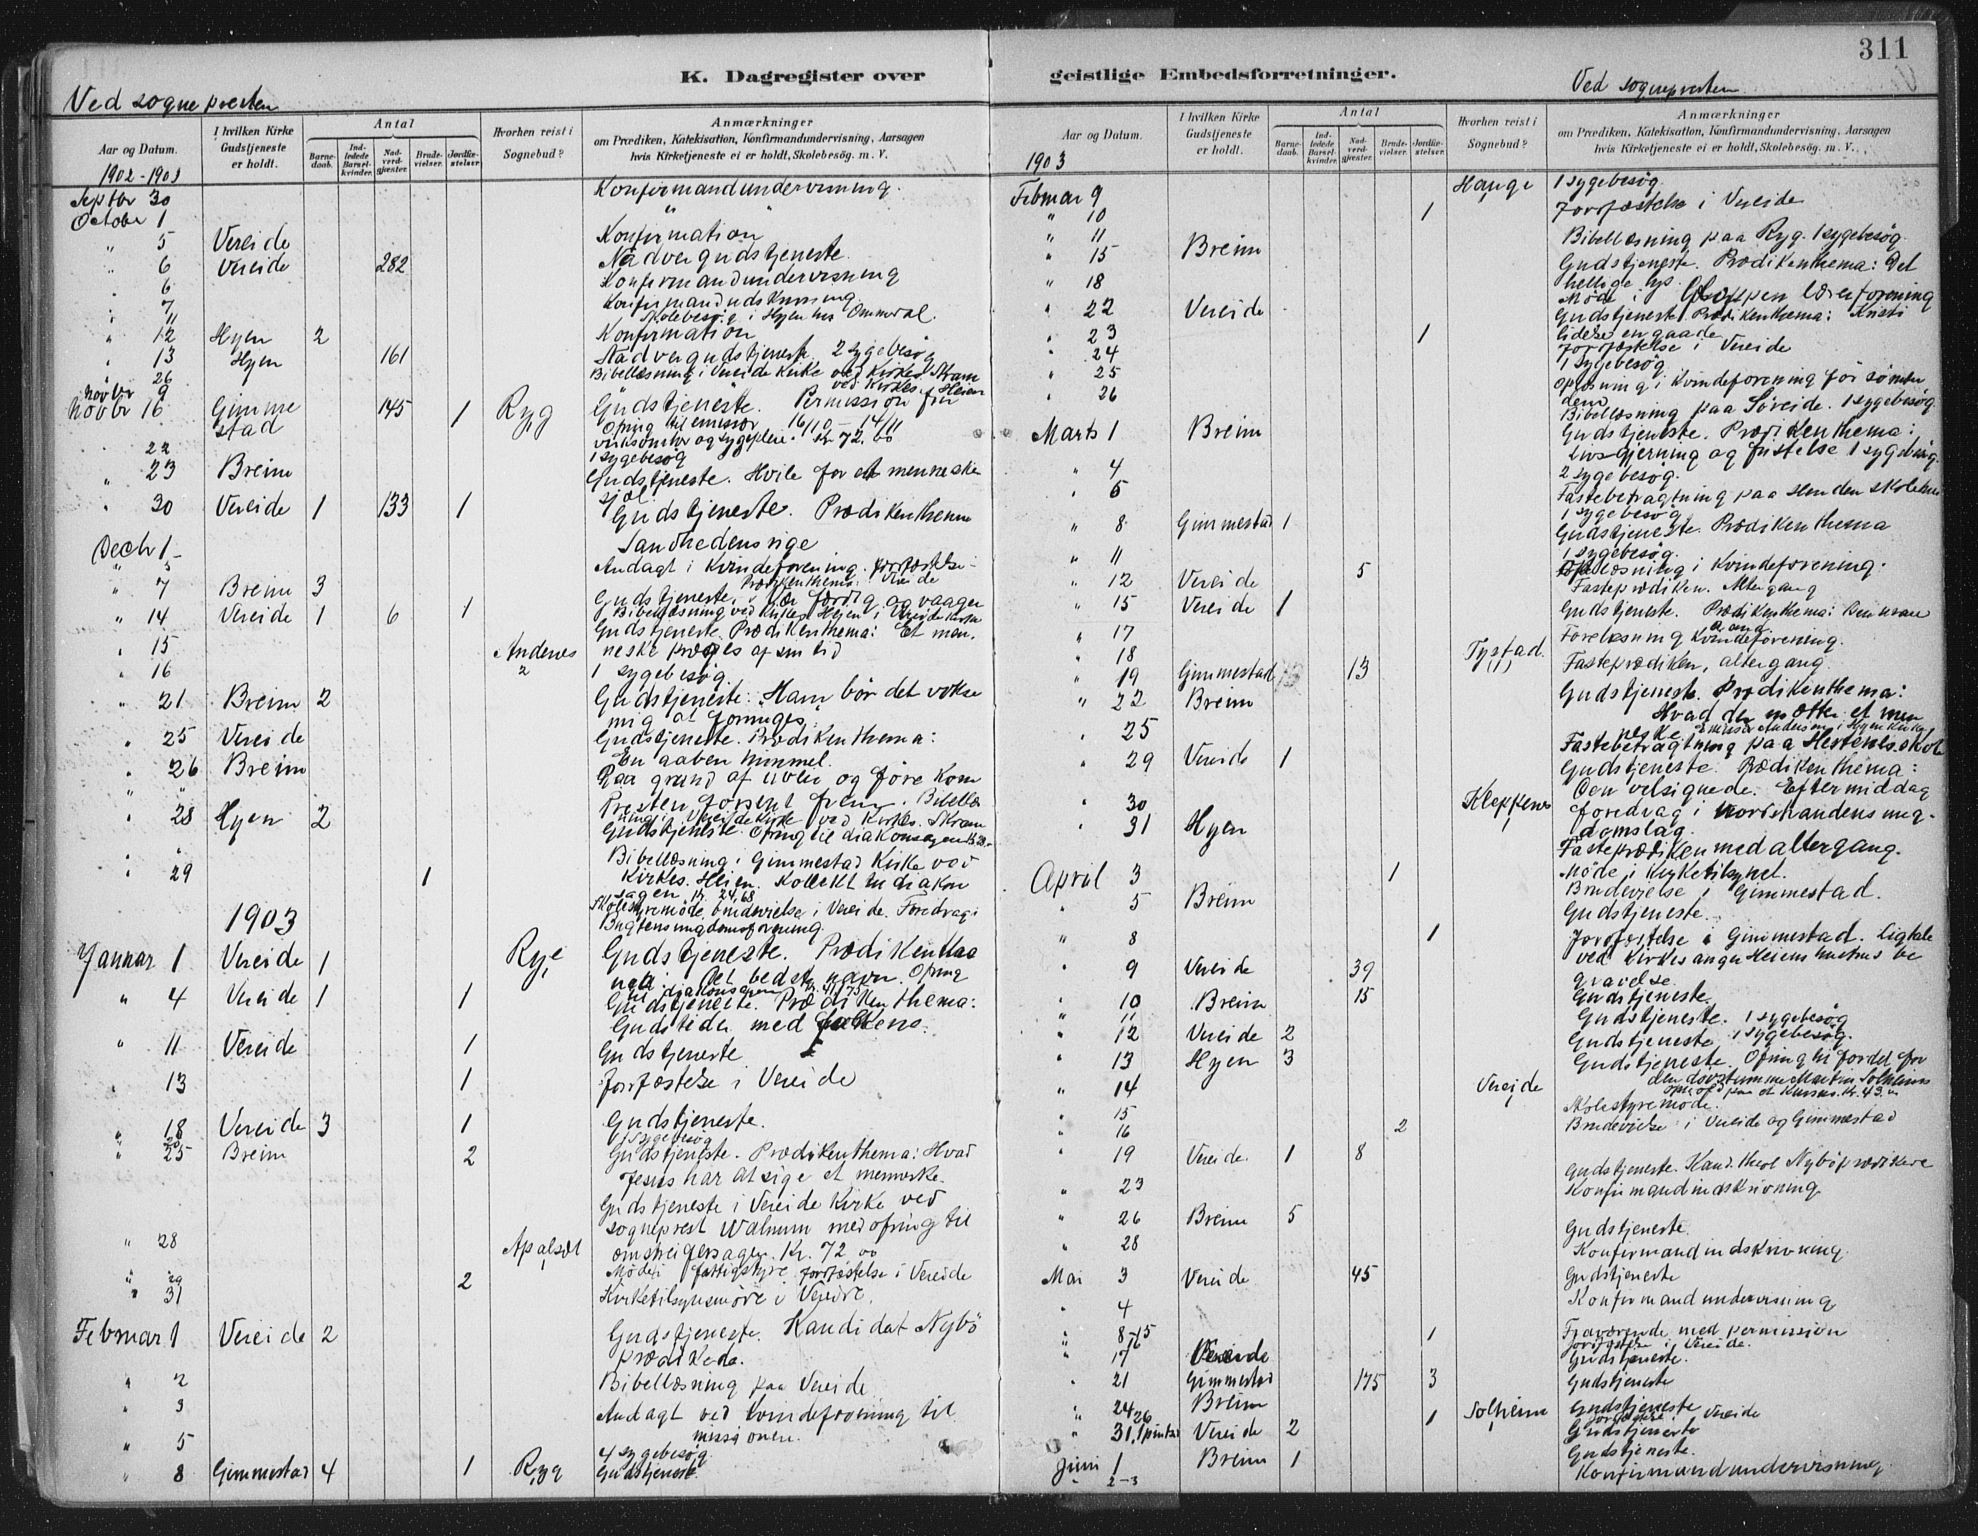 311
K. Dagregister over
Ved sogne presten
Aar og Datum.
I hvilken Kirke Gudstjeneste er holdt.
Antal
Barnedaab.
Indledede Barselkvinder.
Nadverdgjæster.
Brudevielser.
Jordfæstelser.
Hvorhen reist i Sognebud?
Anmærkninger
om Prædiken, Katekisation, Konfirmandundervisning, Aarsagen
hvis Kirketjeneste ei er holdt, Skolebesøg. m. V.
1902-1903
Septbr 30 Konfirmandundervisning.
October 1 " "
" 5 Vereide Konfirmation
" 6 Vereide 282 Nadvergudstjeneste.
" 6 Konfirmandundervisning
" 7
" 11 Skolebesøg i Hyen
" 12 Hyen 2 Konfirmation
" 13 Hyen 161 Nadvergudstjeneste. 2 sygebesøg
26 Bibellæsning i Vereide Kirke ved Kirkes. Skram
Novbr 9 ved Kirkes. Heien
Novbr 16 Gimmestad 145 1 Ryg Gudstjeneste. Permission fra
16/10 - 14/11
22 1 sygebesøg
" 23 Breim Gudstjeneste. Hvile for et menneske
sjæl
" 30 Vereide 1 133 1 Gudstjeneste. Prædikenthema
Sandhedens rige
Decbr 1
" 5 Andagt i Kvindeforening. Jordfæstelse
" 7 Breim 3 Gudstjeneste. Vær færdig og vaagen
" 14 Vereide 1 6 1 Gudstjeneste. Prædikenthema: Et men-
" 15 Andenes neske præges af sin tid
" 16 2 1 sygebesøg
" 21 Breim 2 Gudstjeneste: Ham bør det vokse
mig at forringes
" 25 Vereide Gudstjeneste. Prædikenthema:
En aaben himmel.
" 26 Breim Paa grund af uveir og føre kom
Presten forsent frem. Bibellæs
ning i Vereide Kirke ved Kirkes. Skram
" 28 Hyen 2 Gudstjeneste. Ofring til diakonsagen
Bibellæsning i Gimmestad Kirke ved
" 29 1 Kirkes. Heien. Kollekt til diakon
sagen kr. 24,68
Skolestyremøde. brudevielse i Vereide. Foredrag i
Bygtens ungdomsforening.
1903
Januar 1 Vereide 1 Rye Gudstjeneste. Prædikenthema
Det bedste navn. Ofring
" 4 Vereide 1 1 Gudstjeneste. Prædikenthema:
Guds tider med folkene.
" 11 Vereide 1 Gudstjeneste
" 13 1 Jordfæstelse i Vereide
" 18 Vereide 3 1 Gudstjeneste.
20 1 sygebesøg
" 25 Breim 2 Gudstjeneste. Prædikenthema: Hvad
Jesus har at sige et menneske
Gudstjeneste i Vereide Kirke ved
sogneprest Walnum med ofring til
" 28 Apalsæt omstreifersagen. Kr. 72 00
" 29 Møde i fattigstyre. Jordfæstelse i Vereide
" 31 2 Kirketilsynsmøde i Vereide.
Februar 1 Vereide 2 Gudstjeneste. Kandidat Nybø
prædikede.
" 2 Bibellæsning paa Vereide
" 3 Andagt ved kvindeforening til
missionen.
" 5 4 sygebesøg
" 8 Gimmestad 4 1 Ryg Gudstjeneste
geistlige Embedsforretninger.
Ved sognepresten
Aar og Datum.
I hvilken Kirke Gudstjeneste er holdt.
Antal
Barnedaab.
Indledede Barselkvinder.
Nadverdgjæster.
Brudevielser.
Jordfæstelser.
Hvorhen reist i Sognebud?
Anmærkninger
om Prædiken, Katekisation, Konfirmandundervisning, Aarsagen
hvis Kirketjeneste ei er holdt, Skolebesøg. m. V.
1903
Februar 9 Hauge 1 sygebesøg
" 10 1 Jordfæstelse i Vereide
" 11 Bibellæsning paa Ryg. 1 sygebesøg
" 15 Breim Gudstjeneste. Prædikenthema: Det
hellige
" 18 Møde i Gloppen lærerforening
" 22 Vereide Gudstjeneste Prædikenthema: Kristi
lidelse en gaade
" 23 1 Jordfæstelse i Vereide
" 24 1 sygebesøg
" 25 Oplæsning i Kvindeforening for
" 26 Bibellæsning paa Søreide. 1 sygebesøg
Marts 1 Breim Gudstjeneste. Prædikenthema:
Livsgjerning og fristelse 1 sygebesøg.
" 4 2 sygebesøg.
" 5 Fastebetragtning paa
1 sygebesøg
" 8 Gimmestad 1 Gudstjeneste. Prædikenthema
" 11 1 sygebesøg.
Oplæsning i Kvindeforening.
" 12 Vereide 5 Fasteprædiken. Altergang
" 15 Vereide 1 Gudstjeneste. Prædikenthema:
" 17 Forelæsning Kvindeforening.
" 18 Tystad
" 19 Gimmestad 13 Fasteprædiken, altergang.
" 22 Breim Gudstjeneste. Prædikenthema:
Hvad der mætter et men
neske
" 25 Fastebetragtning paa Hestenes. skole
" 29 Vereide 1 Gudstjeneste. Prædikenthema:
Den velsignede. Eftermiddag
" 30 Kleppenes foredrag i Nordstrandens ung-
domslag
" 31 Hyen Fasteprædiken med altergang.
Møde i Kirketilsynet.
April 3 1 Brudevielse i Gimmestad.
" 5 Breim Gudstjeneste.
" 8 1 Jordfæstelse i Gimmestad. Ligtale
ved Kirkesanger Heiens hustrus be
gravelse
" 9 Vereide 39 Gudstjeneste
" 10 Breim 15 Gudstjeneste. 1 sygebesøg
" 11
" 12 Vereide 2 Gudstjeneste 1 sygebesøg.
" 13 Hyen 3 Gudstjeneste Ofring til fordel for
den døvstumme Martin Solheims
ophold paa et Kursus. Kr. 43
" 14 Vereide
" 15 Skolestyremøde.
" 16 2 Brudevielse i Vereide og Gimmestad
" 19 Vereide. 1 8 Gudstjeneste. Kand. theol Nybø prædikede
" 23 Konfirmandindskrivning
" 26 Breim 5 Gudstjeneste.
" 28 Konfirmandindskrivning
Mai 3 Vereide 45 Gudstjeneste
" 4 Konfirmandundervisning
" 8-15 1 Fraværende med permission
16 Jordfæstelse i Vereide.
" 17 Vereide Gudstjeneste.
" 21 Gimmestad 175 3 Gudstjeneste
" 24 Breim Gudstjeneste
26 1 Solheim Jordfæstelse i Vereide
" 31, 1 pintsd Vereide 2 Gudstjeneste
Juni 1 Breim 1 Gudstjeneste.
" 2-3 Konfirmandundervisning